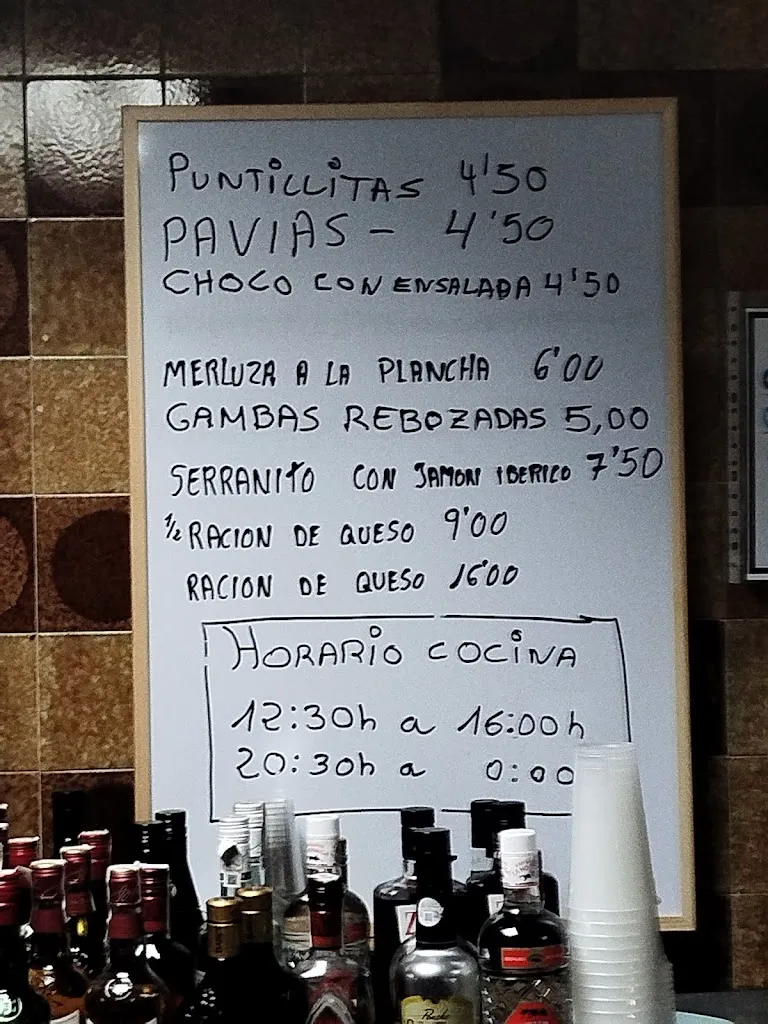 PUNTILLITAS 4'50
PAVIAS - 4'50
CHOCO CON ENSALADA 4'50
MERLUZA A LA PLANCHA 6'00
GAMBAS REBOZADAS 5,00
SERRANITO CON JAMON IBERICO 7'50
1/2 RACION DE QUESO 9'00
RACION DE QUESO 16'00
HORARIO COCINA
12:30h a 16:00h
20:30h a 0:00